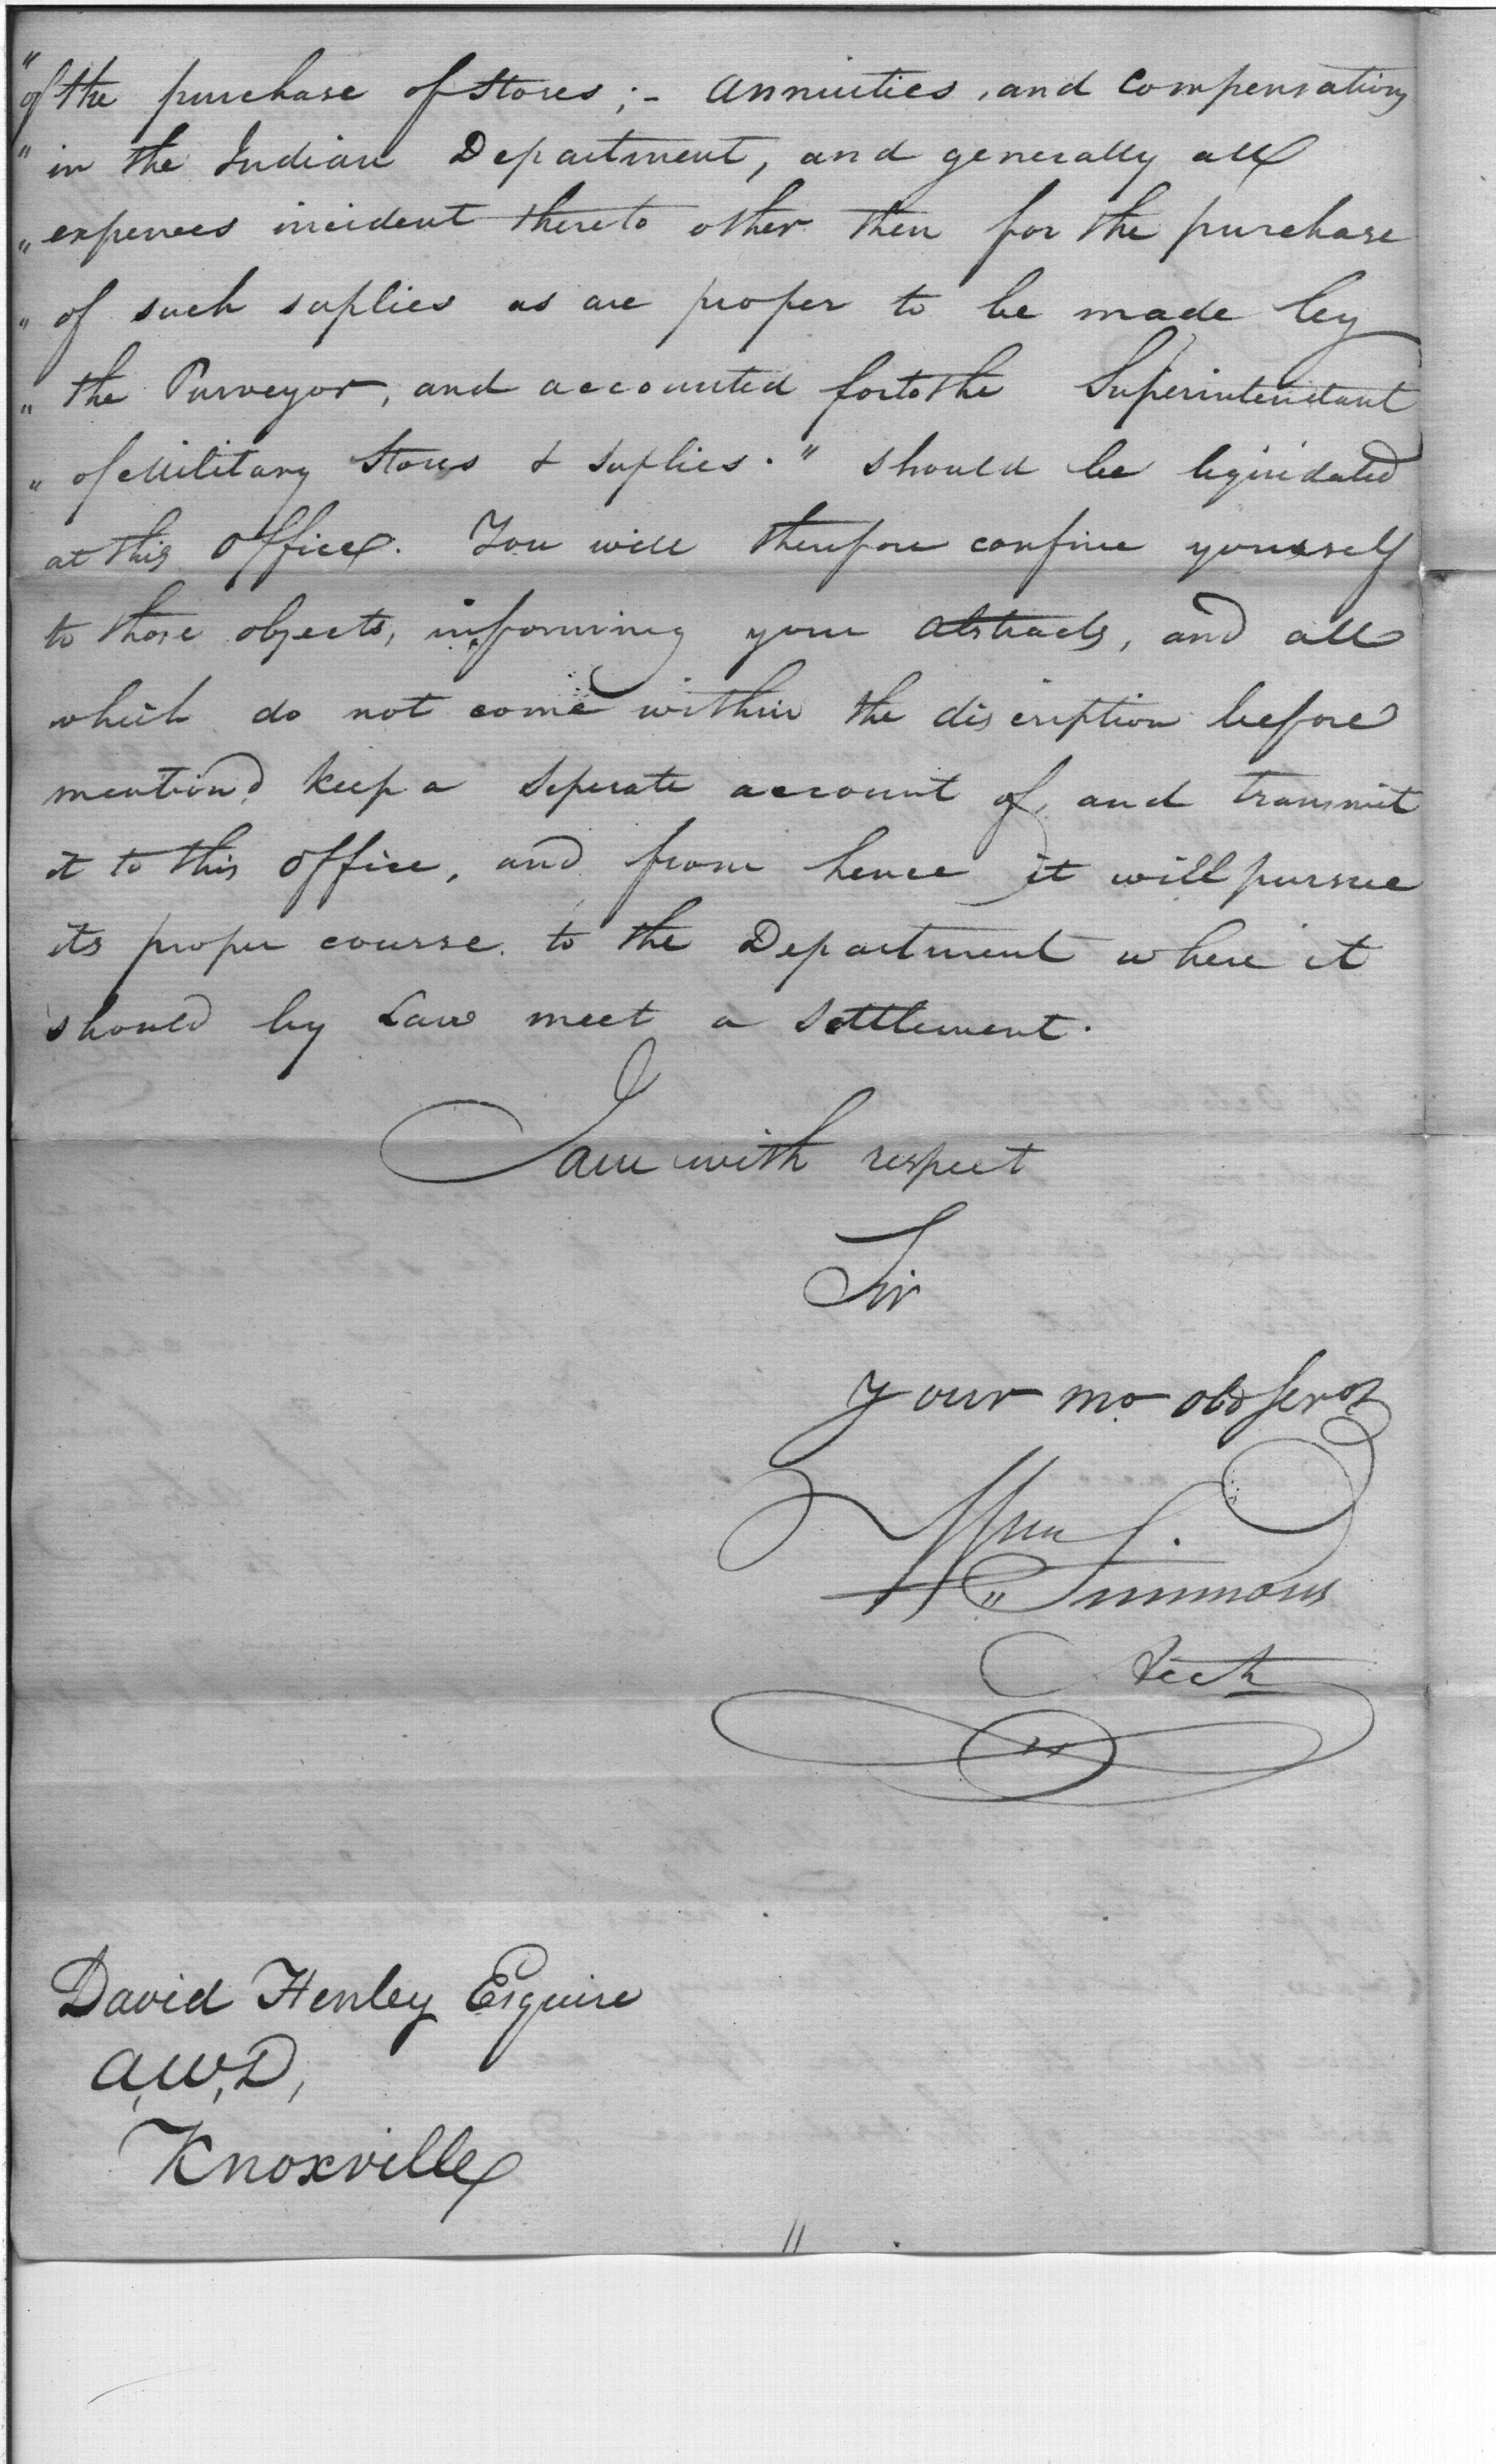 "of the purchase of Stores;- Annuities, and Compensations
" in the Indian Department, and generally all
" expences incident thereto other then for the purchase
" of such suplies as are proper to be made by
" the Purveyor, and accounted for to the Superintendant
" of Military Stores & Suplies." should be liquidated
at this Office. You will therefore confine yourself
to those objects, in forming your Abstracts, and all
which do not come within the discription before
mention'd keep a seperate account of, and transmit
it to this Office, and from hence it will pursue
its proper course to the Department where it
should by Law meet a settlement.
I am with respect
Sir
Your mo obd Servt
Wm Simmons
Acct
David Henley Esquire
A,W,D,
Knoxville